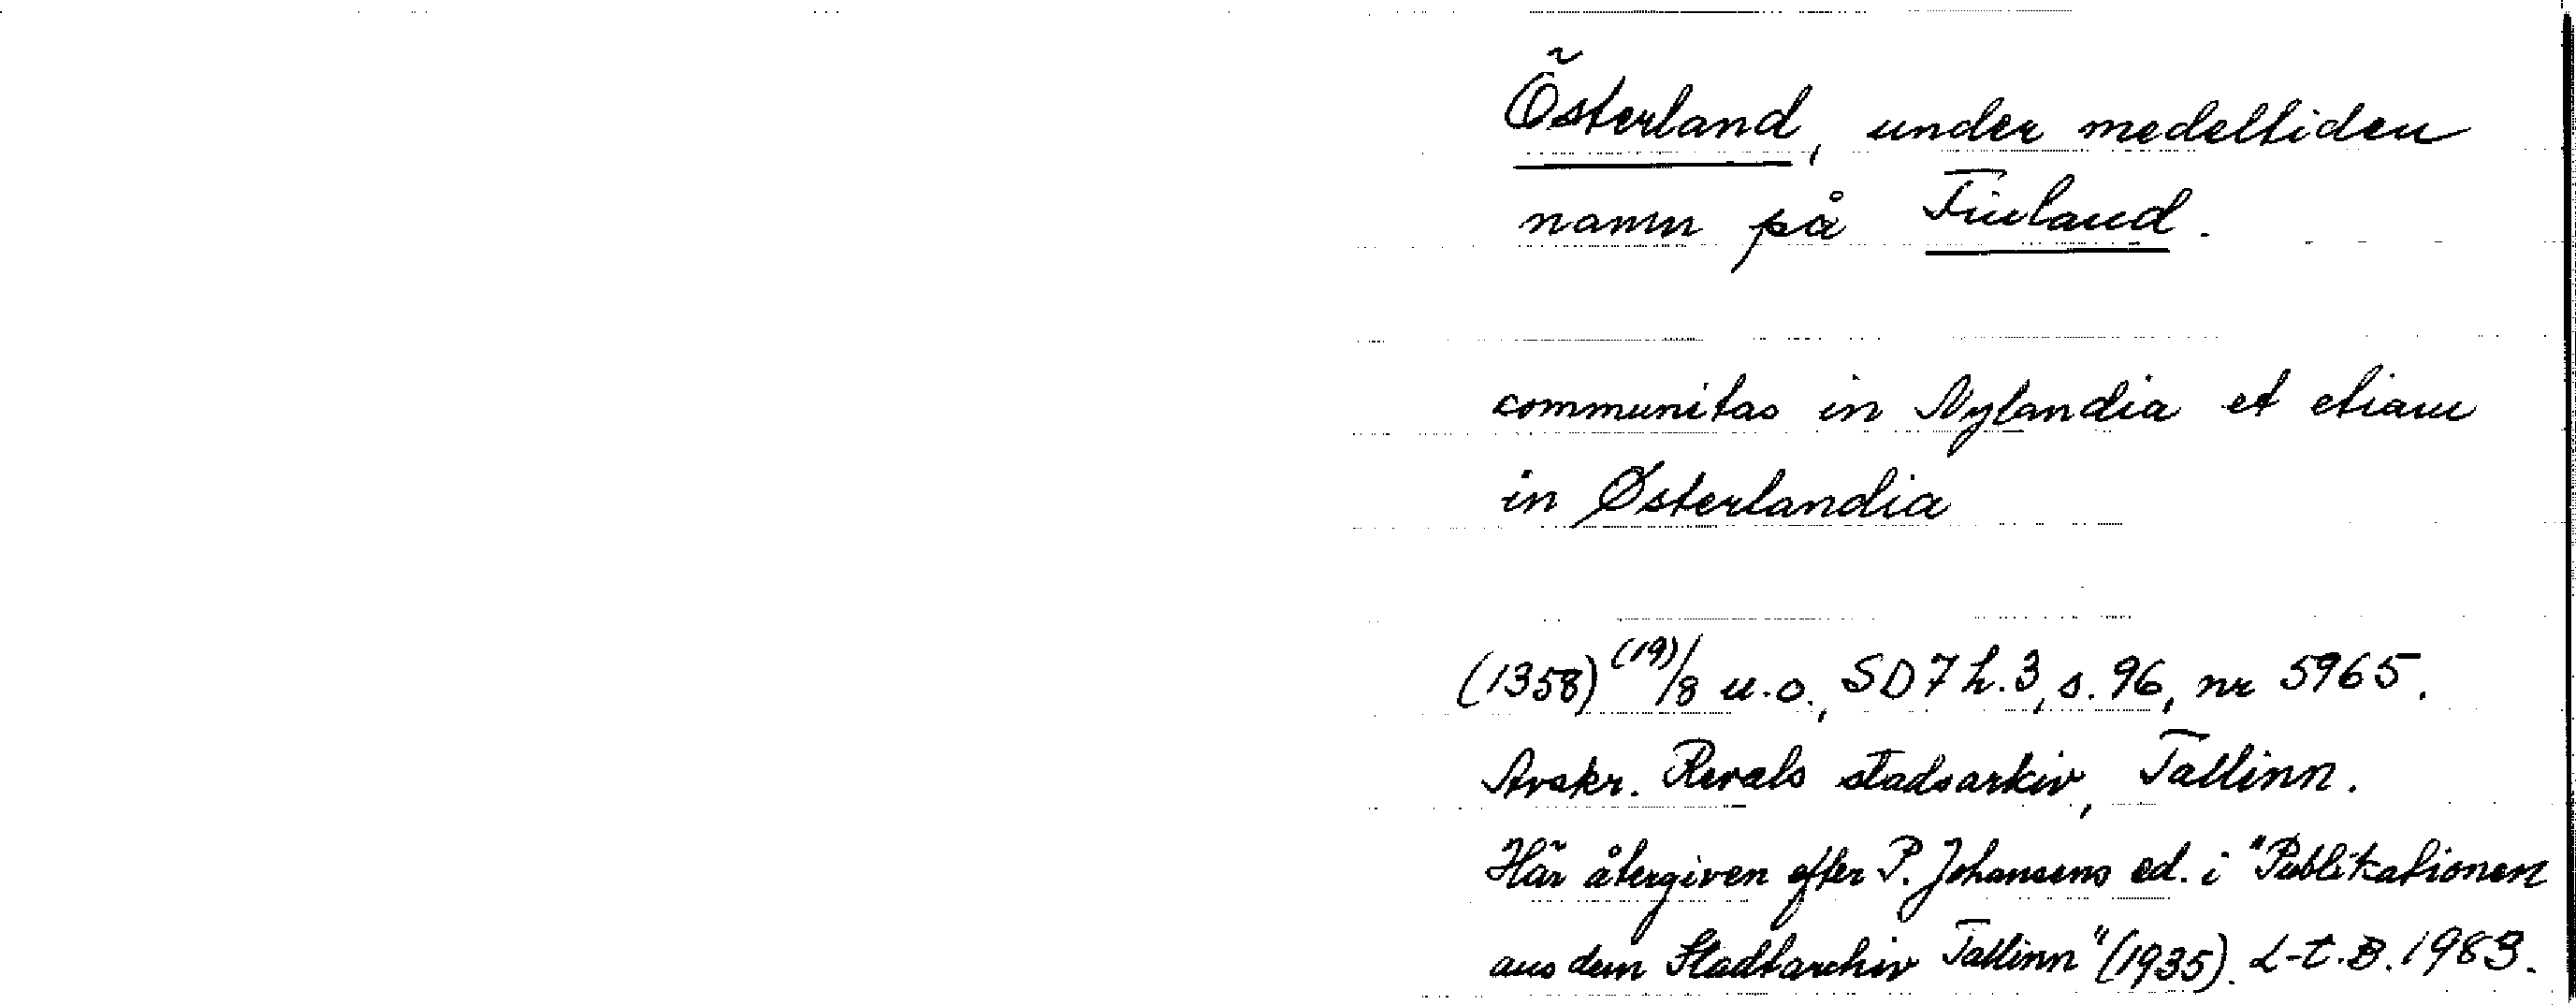 Österland, under medeltiden
namn på Finland.
communitas in Nylandia et etiam
in Østerlandia
(1358) (19)/8 u.o., SD 7 h.3, s. 96, nr 5965.
Avskr. Revals stadsarkiv, Tallinn.
Här återgiven efter P. Johansens ed. i "Publikationen
aus dem Stadtarchiv Tallinn" (1935). L-t.B. 1983.